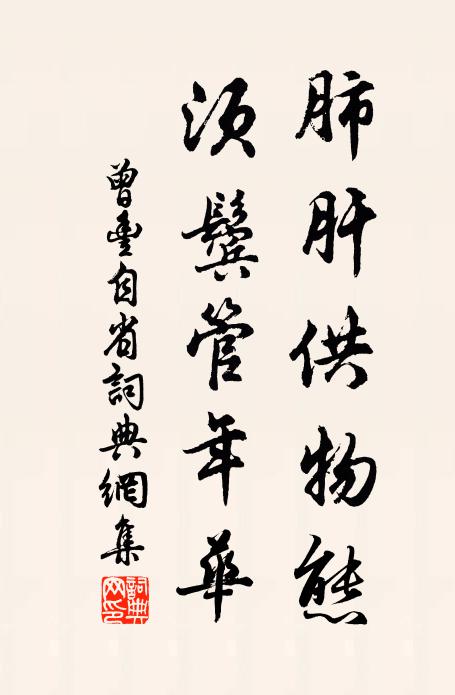 肺肝供物態
須鬢管年華
曾豊自省詞典網集
詞典網印